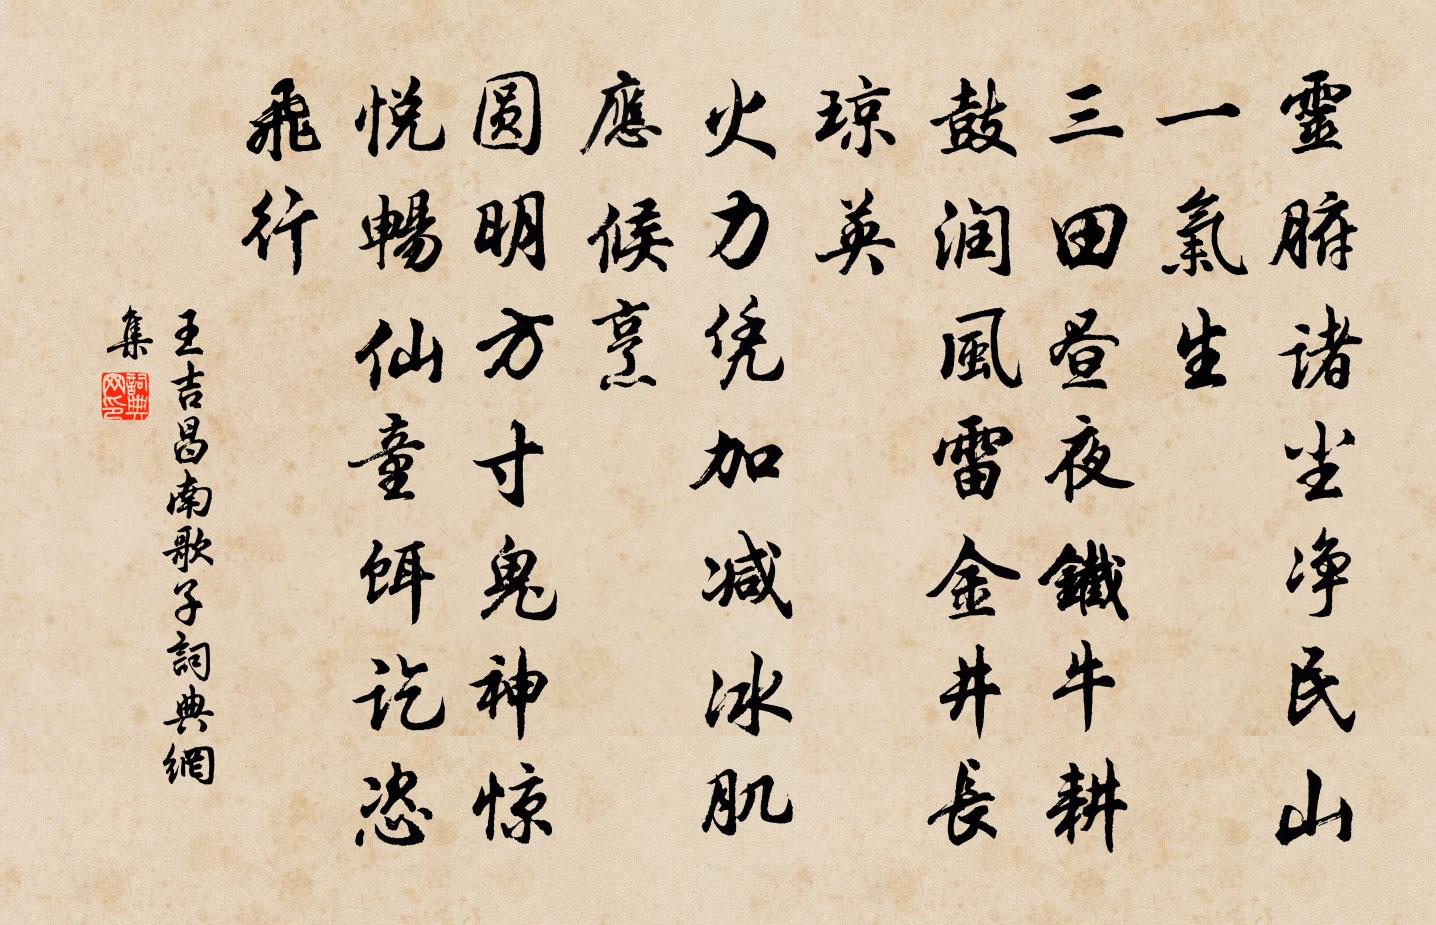 靈腑诸尘净民山
一氣生
三田昼夜鐵牛耕
鼓润風雷金井長
琼英
火力凭加减冰肌
應候烹
圆明方寸鬼神惊
悦暢仙童饵讫恣
飛行
王吉昌南歌子詞典網
集
詞典网印